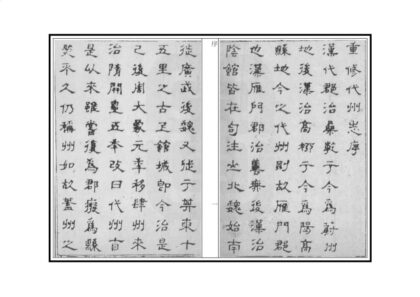 重修代州志序
漢代郡治桑乾于今為蔚州
地後漢治高柳于今為陽高
縣地今之代州則故雁門郡
也漢雁門郡治善無後漢治
陰館皆在句注之北魏始南
徙廣武後魏又徙于其東十
五里之古上館城即今治是
已後周大象元年移肆州來
治隋開皇五年改曰代州自
是以來雖嘗復為郡為縣
不久仍稱州如故蓋州之